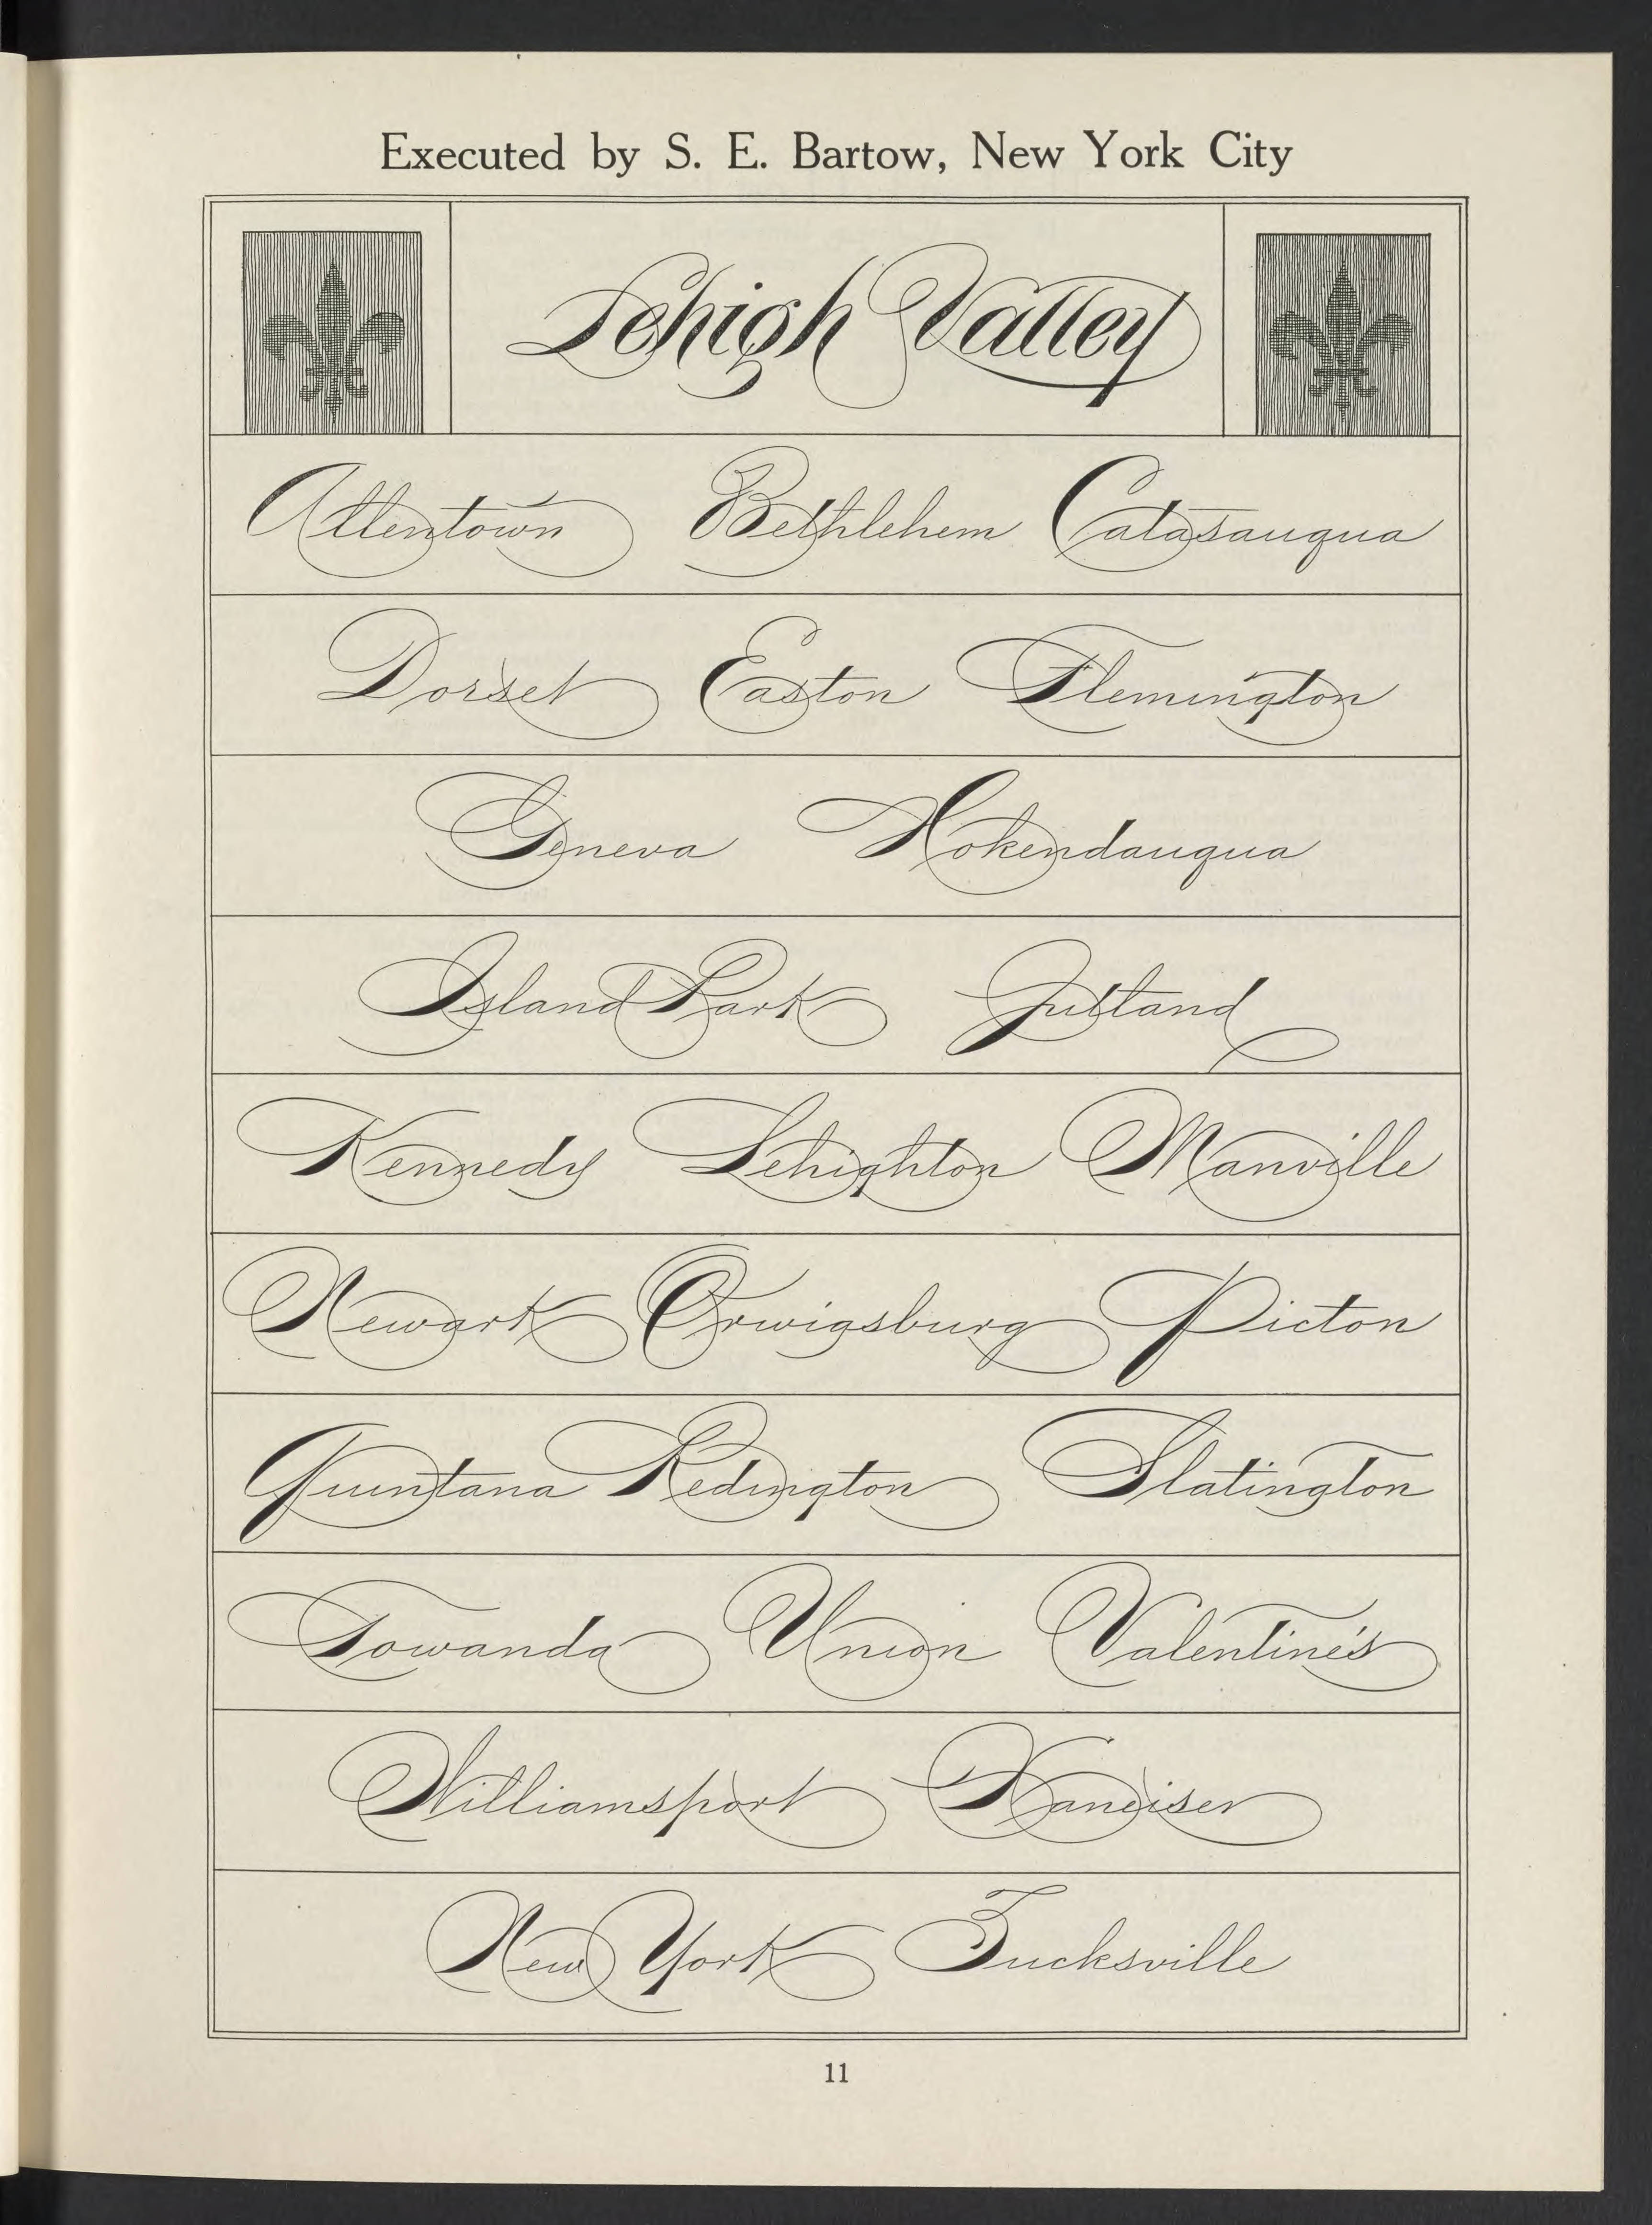 Executed by S. E. Bartow, New York City
Lehigh Valley
Allentown Bethlehem Catasauqua
Dorset Easton Flemington
Geneva Hokendauqua
Island Park Jutland
Kennedy Lehighton Manville
Newark Orwigsburg Picton
Quintana Redington Slatington
Towanda Union Valentine's
Williamsport
New York Zucksville
11